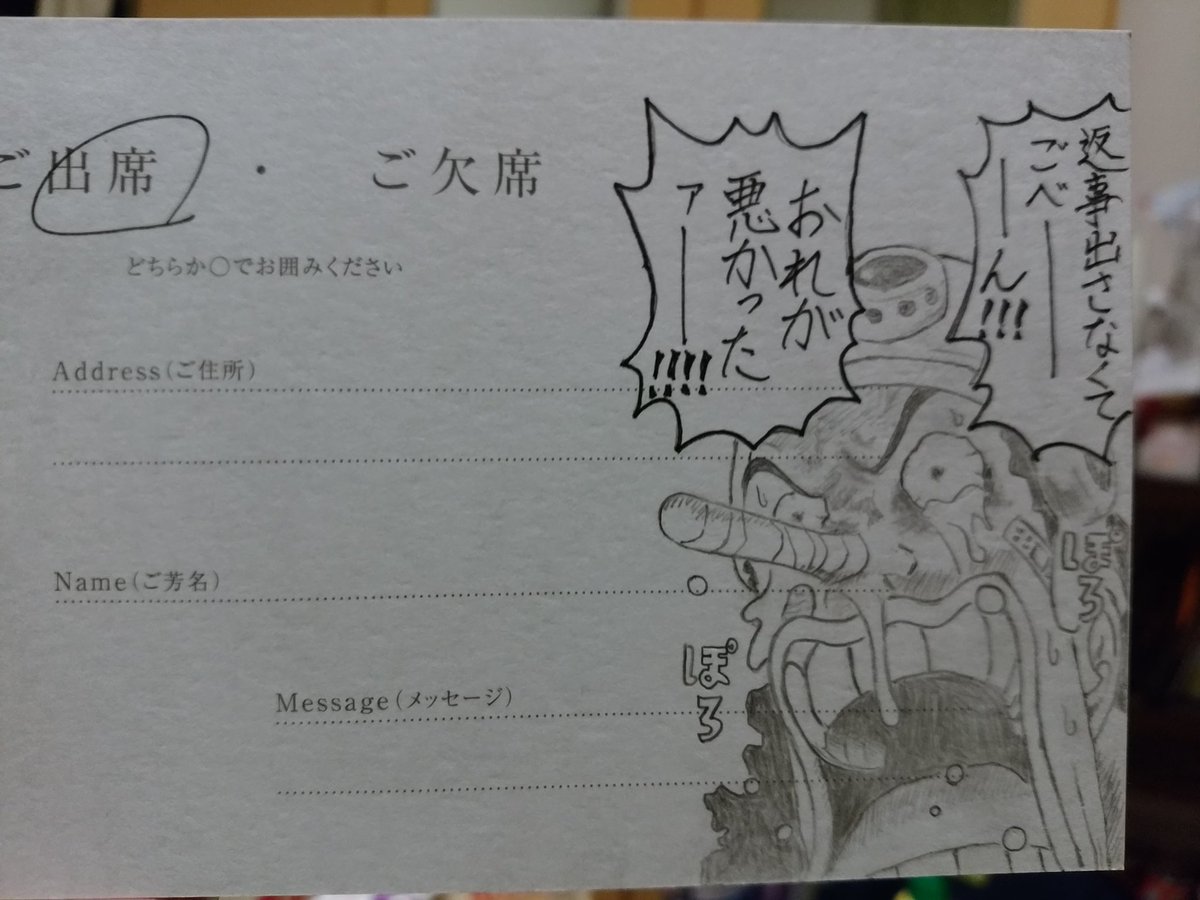 ご出席 ・ ご欠席
どちらか○でお囲みください
Address(ご住所)
Name(ご芳名)
Message(メッセージ)
返事出さなくて
ごべー
ーん!!!
おれが
悪かった
アー!!!!
ぽろ
ぽろ